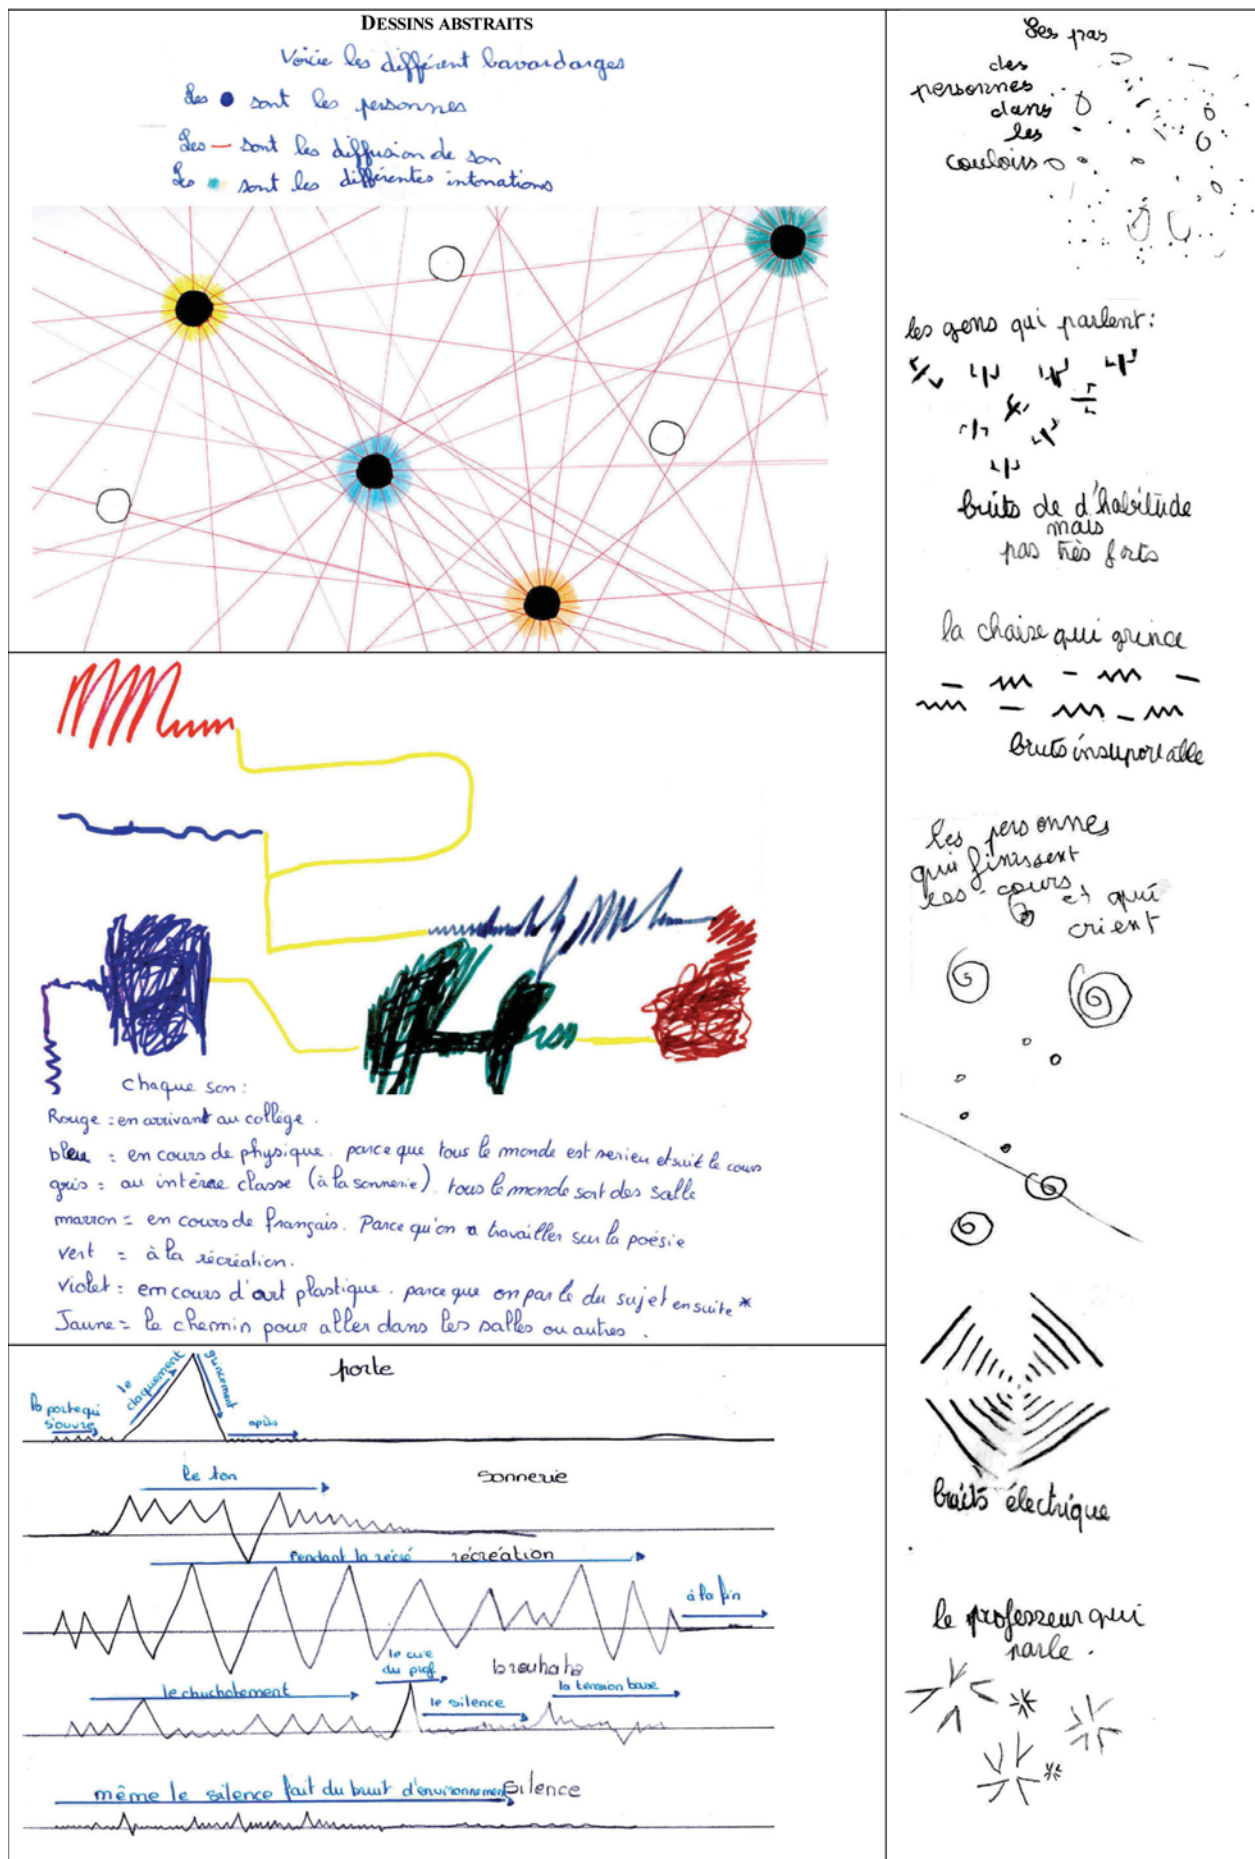 DESSINS ABSTRAITS
Voicie les différent bavardarges
Les ● sont les personnes
Les — sont les diffusion de son
Les sont les différentes intonations
chaque son :
Rouge = en arrivant au collège .
bleu = en cours de physique . parce que tous le monde est serieu et suit le cours
gris = au intèree classe (à la sonnerie) . tous le monde sort des salle
marron = en cours de français . Parce qu'on a travailler sur la poèsie
vert = à la récréation.
violet = em cours d'art plastique . parce que on parle du sujet ensuite *
Jaune = le chemin pour aller dans les salles ou autres .
porte
la porte qui
s'ouvre
le claquement
grincement
après
le ton
sonnerie
pendant la récré
récréation
à la fin
le chuchotement
le crie
du prof
le silence
brouhaha
la tension baisse
même le silence fait du bruit d'environnement
silence
Les pas
des
personnes
dans
les
couloirs
les gens qui parlent :
bruits de d'habitude
mais
pas très forts
la chaise qui grince
bruts insuportable
les personnes
qui finissent
les cours
et qui
crient
bruits électrique
le professeur qui
parle .